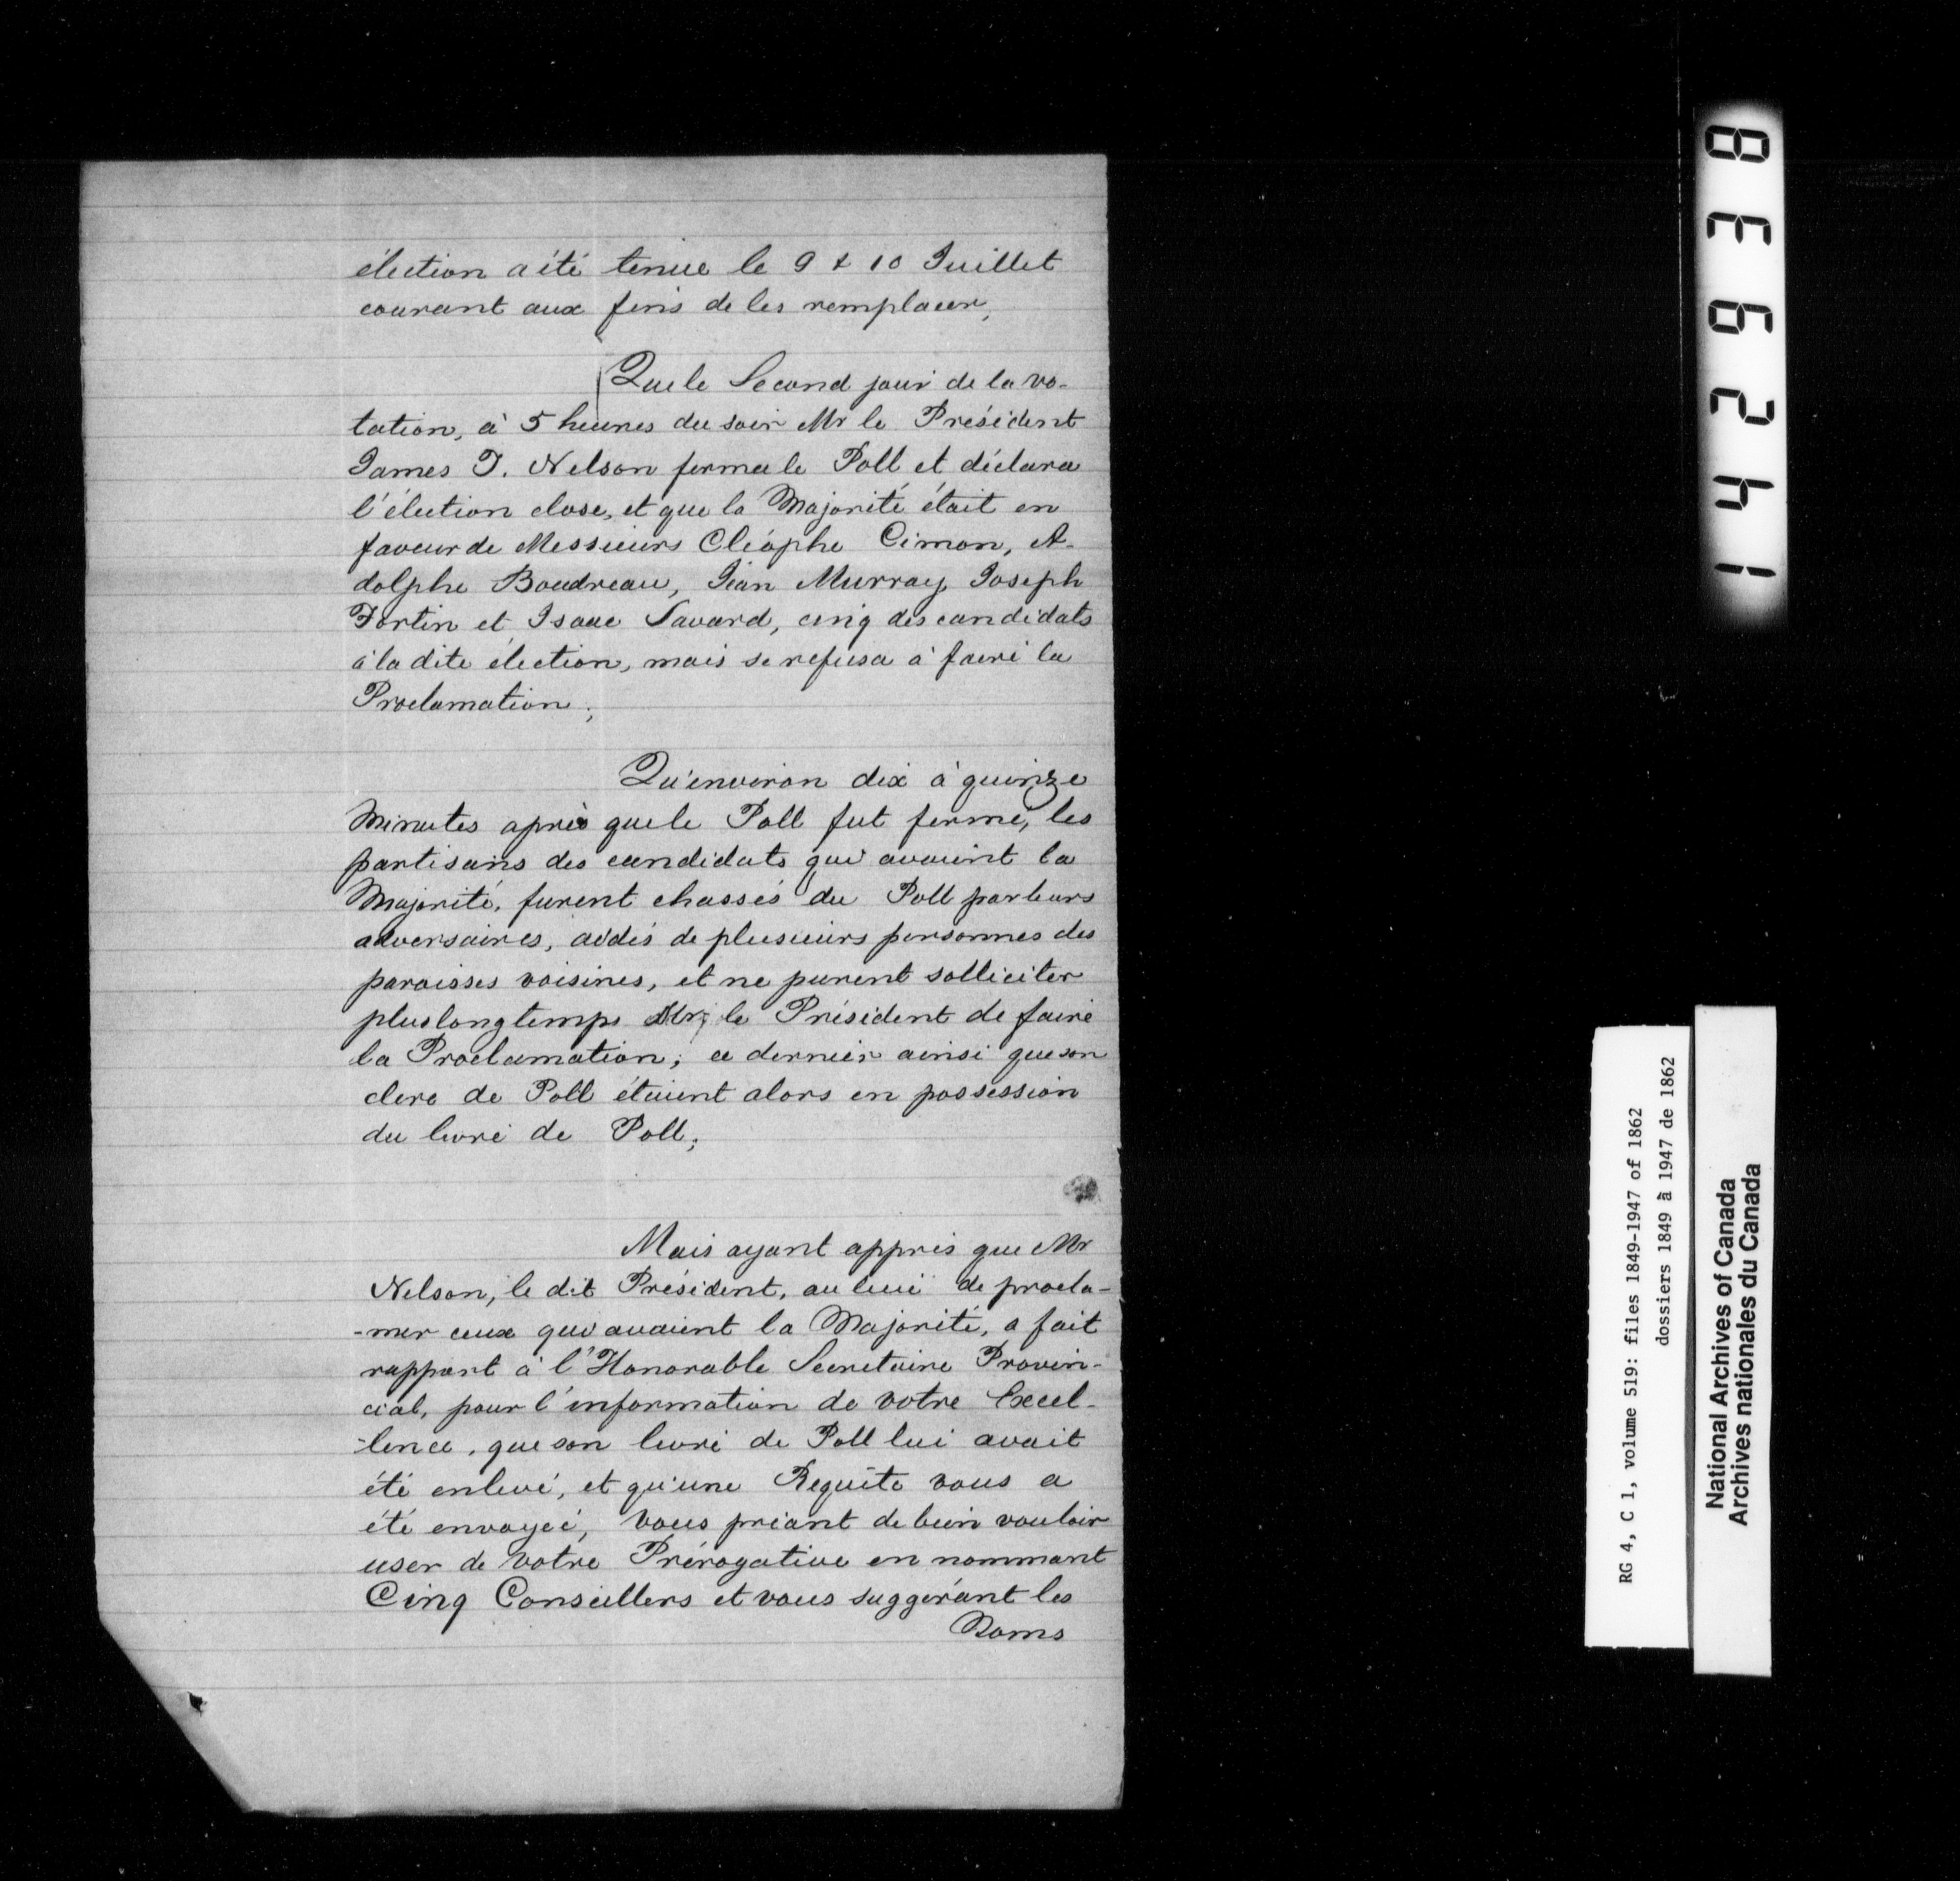 élection a été tenue le 9 & 10 Juillet
courant aux fins de les remplacer,
Que le Second jour de la vo-
tation, à 5 heures du soir Mr le Président
James T. Nelson ferma le Poll et déclara
l'élection close, et que la Majorité était en
faveur de Messieurs Cléophe Cimon, A-
dolphe Boudreau, Jean Murray, Joseph
Fortin et Isaac Savard, cinq des candidats
à la dite élection, mais se refusa à faire la
Proclamation;
Qu'environ dix à quinze
Minutes après que le Poll fut fermé, les
partisans des candidats qui avaient la
Majorité, furent chassés du Poll par leurs
adversaires, aidés de plusieurs personnes des
paroisses voisines, et ne purent solliciter
plus longtemps Mr, le Président de faire
la Proclamation; ce dernier ainsi que son
clerc de Poll étaient alors en possession
du livre de Poll;
Mais ayant appris que Mr
Nelson, le dit Président, au lieu de procla-
-mer ceux qui avaient la Majorité, a fait
rapport à l'Honorable Secretaire Provin-
cial, pour l'information de votre Excel-
-lence, que son livre de Poll lui avait
été enlevé, et qu'une Requête vous a
été envoyée, vous priant de bien vouloir
user de votre Prérogative en nommant
Cinq Conseillers et vous suggérant les
Noms
1442638
RG 4, C 1, volume 519: files 1849-1947 of 1862
dossiers 1849 à 1947 de 1862
National Archives of Canada
Archives nationales du Canada